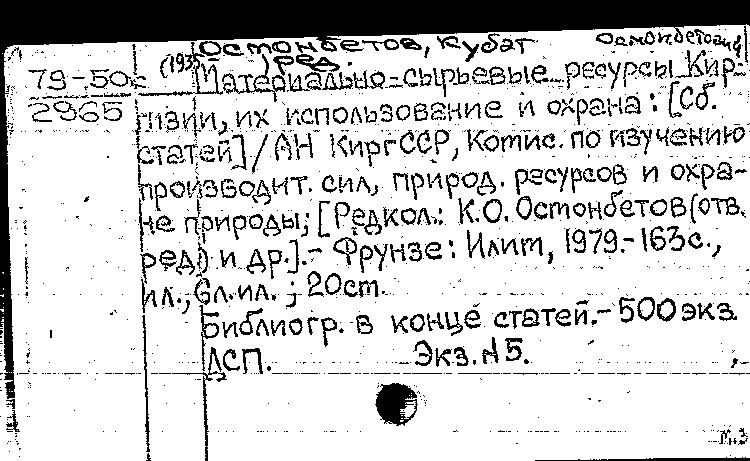 Остонбетов, Кубат
(1935 ) ред.
79-50с
2965
Материально-сырьевые ресурсы Кир-
гизии, их использование и охрана: [Сб.
статей] / АН КиргССР, Комис. по изучению
производит. сил, природ. ресурсов и охра-
не природы; [Редкол.: К.О. Остонбетов (отв.
ред.) и др.].- Фрунзе: Илим, 1979.-163с.,
ил., 6л.ил. ; 20cm.
Библиогр. в конце статей.- 500 экз.
ДСП. Экз. №5.